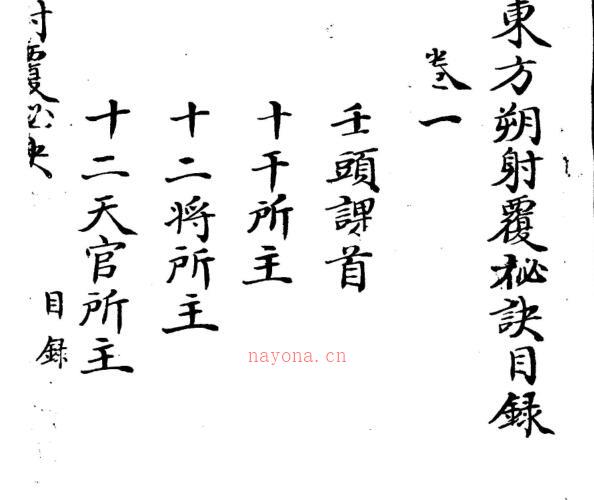 東方朔射覆祕訣目録
卷一
壬頭課首
十干所主
十二将所主
十二天官所主
射覆必决
目錄
nayona.cn